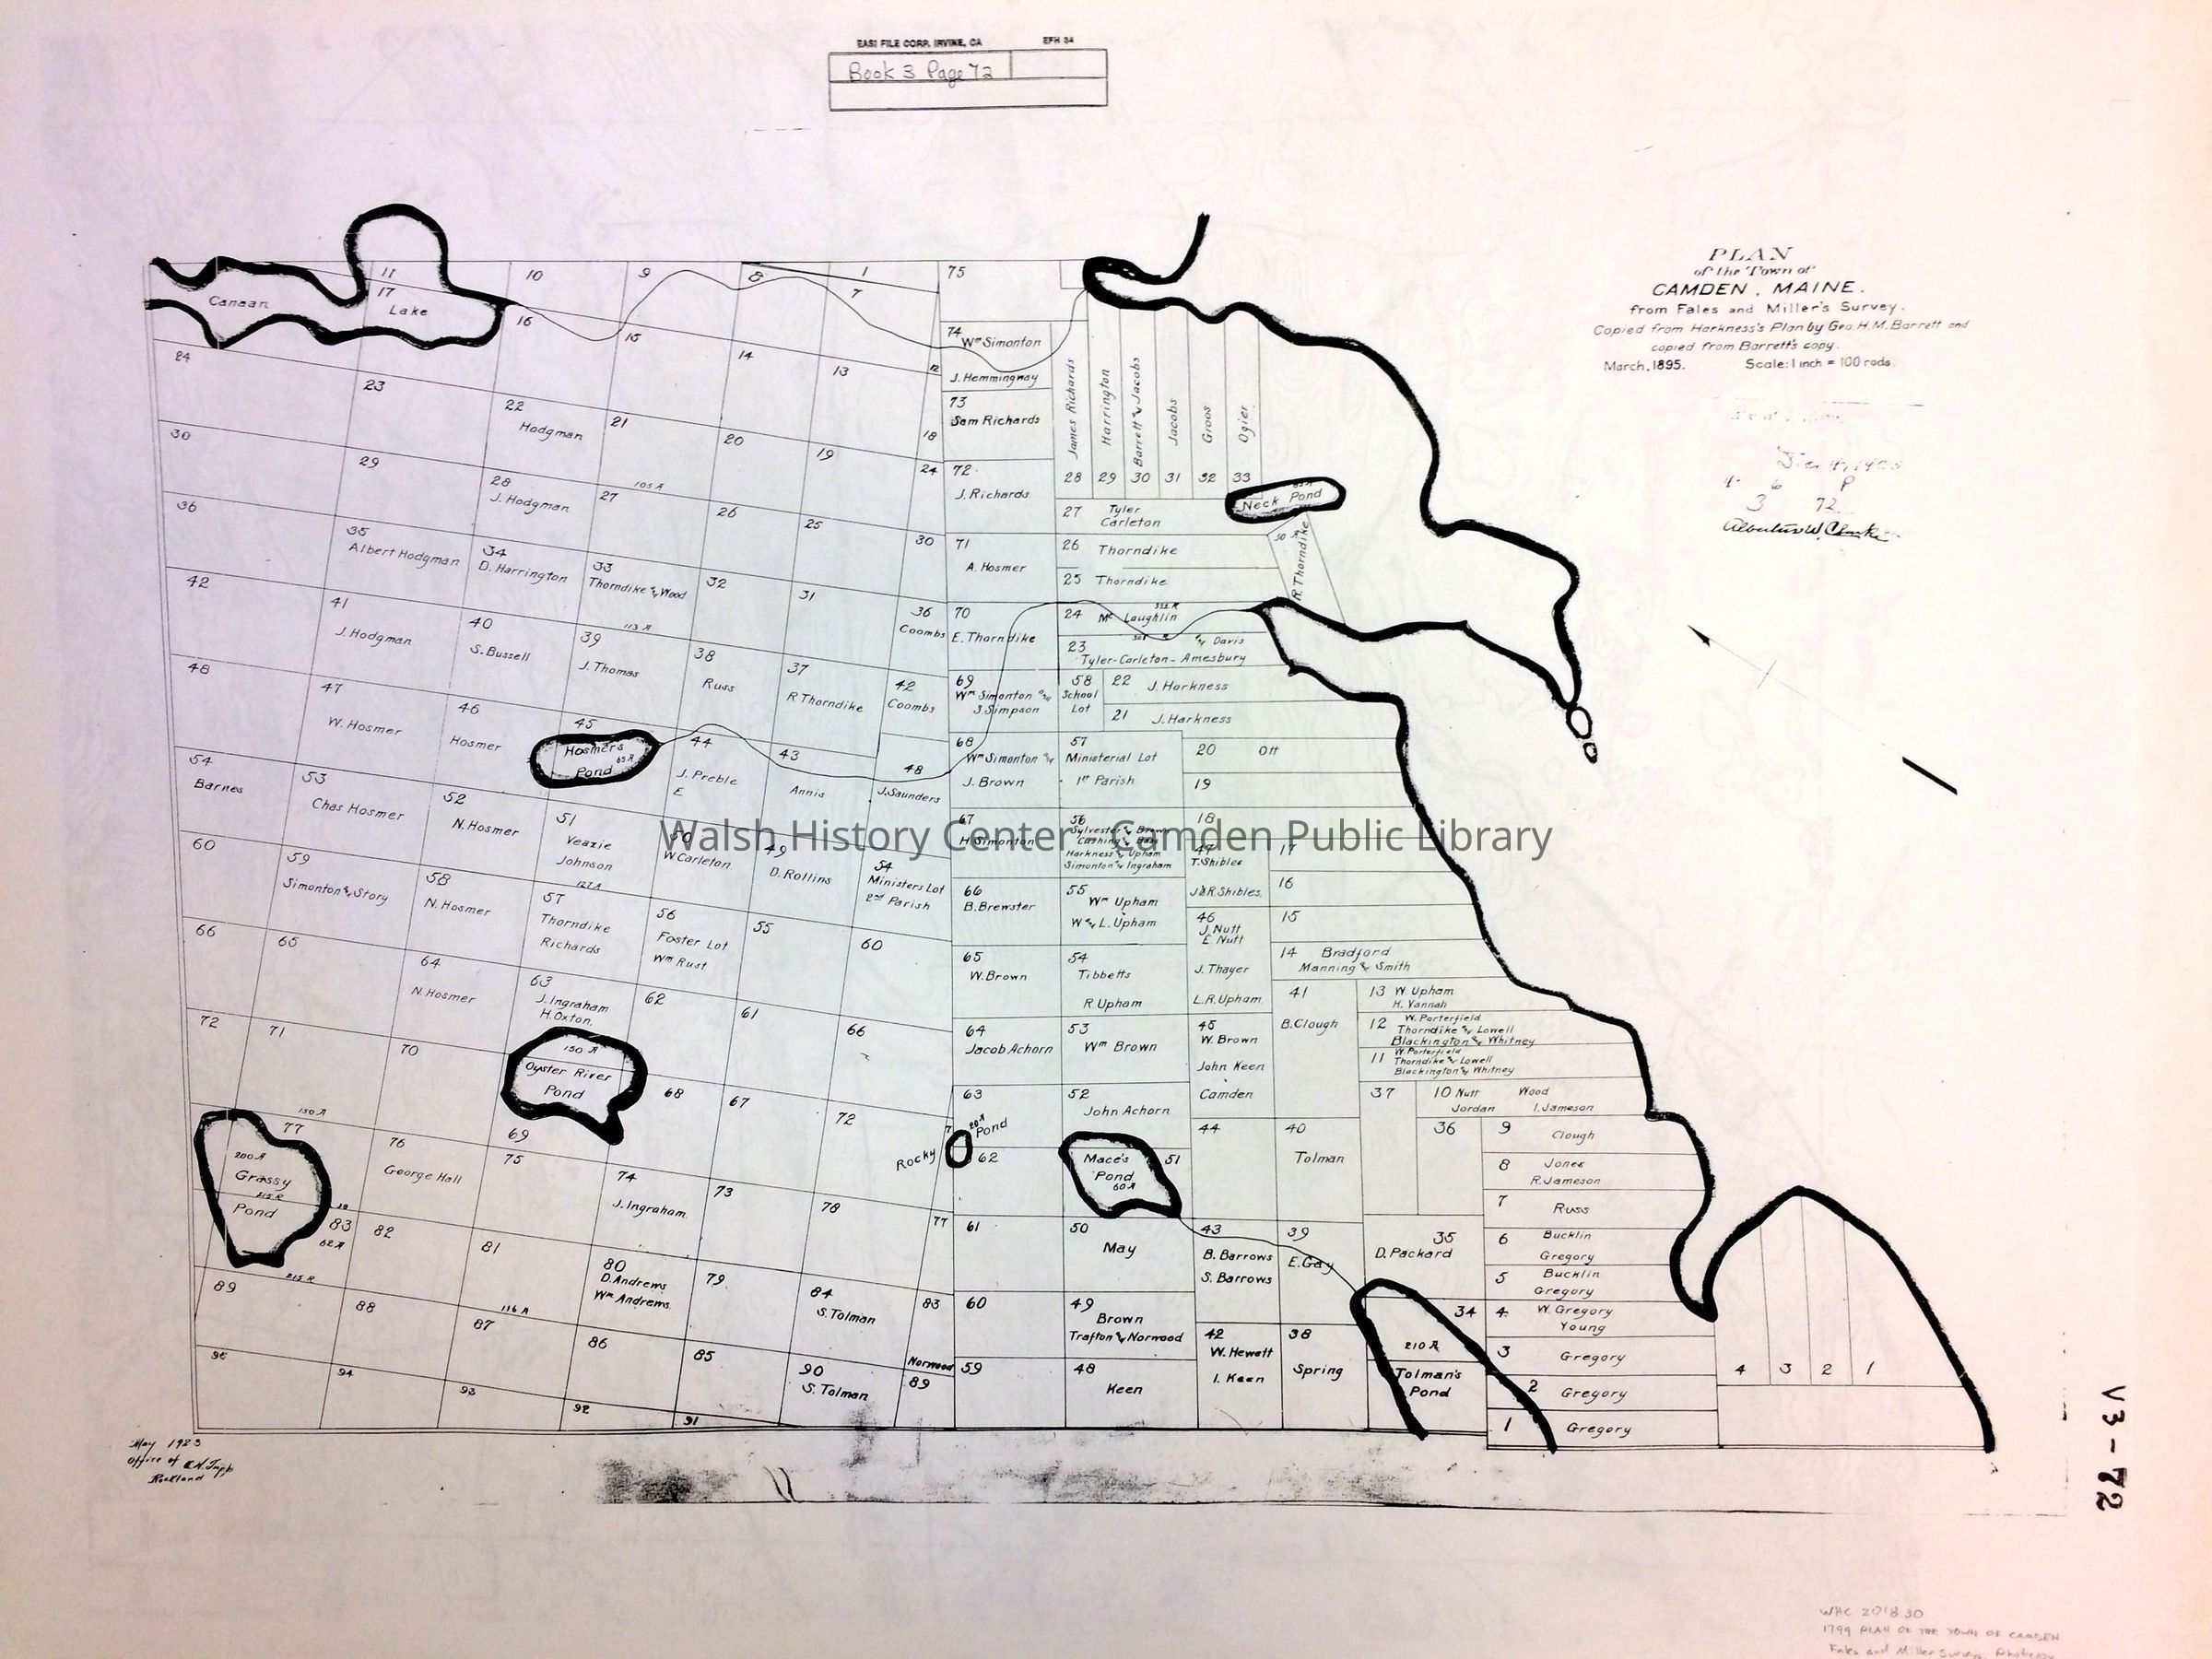 EASI FILE CORP. IRVINE, CA EFH 34
Book 3 Page 72
PLAN
of the Town of
CAMDEN, MAINE.
from Fales and Miller's Survey.
Copied from Harkness's Plan by Geo. H.M. Barrett and
copied from Barrett's copy.
March, 1895. Scale: 1 inch = 100 rods.
6 P
3 72
Canaan
Lake
11
17
10
9
8
1
7
75
16
15
14
13
12
74
Wm Simonton
J. Hemmingway
24
23
22
Hodgman
21
20
19
18
73
Sam Richards
James Richards
Harrington
Barrett & Jacobs
Jacobs
Groos
Ogier
28 29 30 31 32 33
30
29
28
J. Hodgman
105 A
27
26
25
24
72
J. Richards
Neck Pond
27 Tyler
Carleton
36
35
Albert Hodgman
34
D. Harrington
33
Thorndike & Wood
32
31
30
71
A. Hosmer
26 Thorndike
25 Thorndike
50 A
R. Thorndike
42
41
J. Hodgman
40
S. Bussell
113 A
39
J. Thomas
38
Russ
37
R Thorndike
36
Coombs
70
E. Thorndike
24 Mc Laughlin
23 & Davis
Tyler-Carleton-Amesbury
48
47
W. Hosmer
46
Hosmer
45
Hosmer's
Pond
65 A
44
J. Preble
E
43
Annis
42
Coombs
48
J. Saunders
69
Wm Simonton &
S. Simpson
58
School
Lot
22 J. Harkness
21 J. Harkness
68
Wm Simonton &
J. Brown
57
Ministerial Lot
1st Parish
20 Ott
19
54
Barnes
53
Chas Hosmer
52
N. Hosmer
51
Veazie
Johnson
127 A
50
W. Carleton
49
D. Rollins
54
Ministers Lot
2nd Parish
67
H. Simonton
56
Sylvester & Brown
Harkness & Upham
Simonton & Ingraham
18
47
T. Shibles
J & R. Shibles
17
16
Walsh History Center, Camden Public Library
60
59
Simonton & Story
58
N. Hosmer
57
Thorndike
Richards
56
Foster Lot
Wm Rust
55
60
66
B. Brewster
55
Wm Upham
W & L. Upham
46
J. Nutt
E. Nutt
J. Thayer
L.R. Upham
15
14 Bradford
Manning & Smith
66
65
64
N. Hosmer
63
J. Ingraham
H. Oxton.
62
61
66
65
W. Brown
54
Tibbetts
R Upham
41
B. Clough
13 W. Upham
H. Vannah
12 W. Porterfield
Thorndike & Lowell
Blackington & Whitney
11 W. Porterfield
Thorndike & Lowell
Blackington & Whitney
72
71
70
150 A
Oyster River
Pond
69
68
67
72
64
Jacob Achorn
53
Wm Brown
45
W. Brown
John Keen
Camden
63
52
John Achorn
37
10 Nutt Wood
Jordan I. Jameson
150 A
77
200 A
Grassy
215 R
Pond
76
George Hall
75
74
J. Ingraham
73
78
77
Rocky
20 A
Pond
62
Mace's
Pond
60 A
51
44
40
Tolman
36
9 Clough
8 Jones
R. Jameson
7 Russ
83
62 A
82
81
80
D. Andrews
Wm Andrews.
79
84
S. Tolman
83
61
50
May
43
B. Barrows
S. Barrows
39
E. Gay
35
D. Packard
6 Bucklin
Gregory
5 Bucklin
Gregory
89
215 R
88
116 A
87
86
85
90
S. Tolman
Norwood
89
60
49
Brown
Trafton & Norwood
42
W. Hewett
I. Keen
38
Spring
34
210 A
Tolman's
Pond
4 W. Gregory
Young
3 Gregory
2 Gregory
1 Gregory
4 3 2 1
94
93
92
91
59
48
Keen
May 1923
Office of
Rockland
V3-72
WHC 2018.30
1799 PLAN OF THE TOWN OF CAMDEN
Fales and Miller Survey, Photocopy